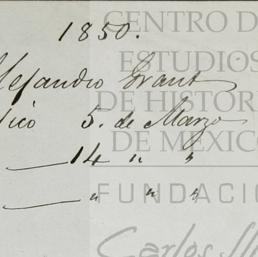 1850.
lejandro Grant
ico 5. de Marzo
— 14 „ „
— „ „ „
CENTRO DE
ESTUDIOS
DE HISTOR
DE MEXIC
FUNDACI
Carlos Sl